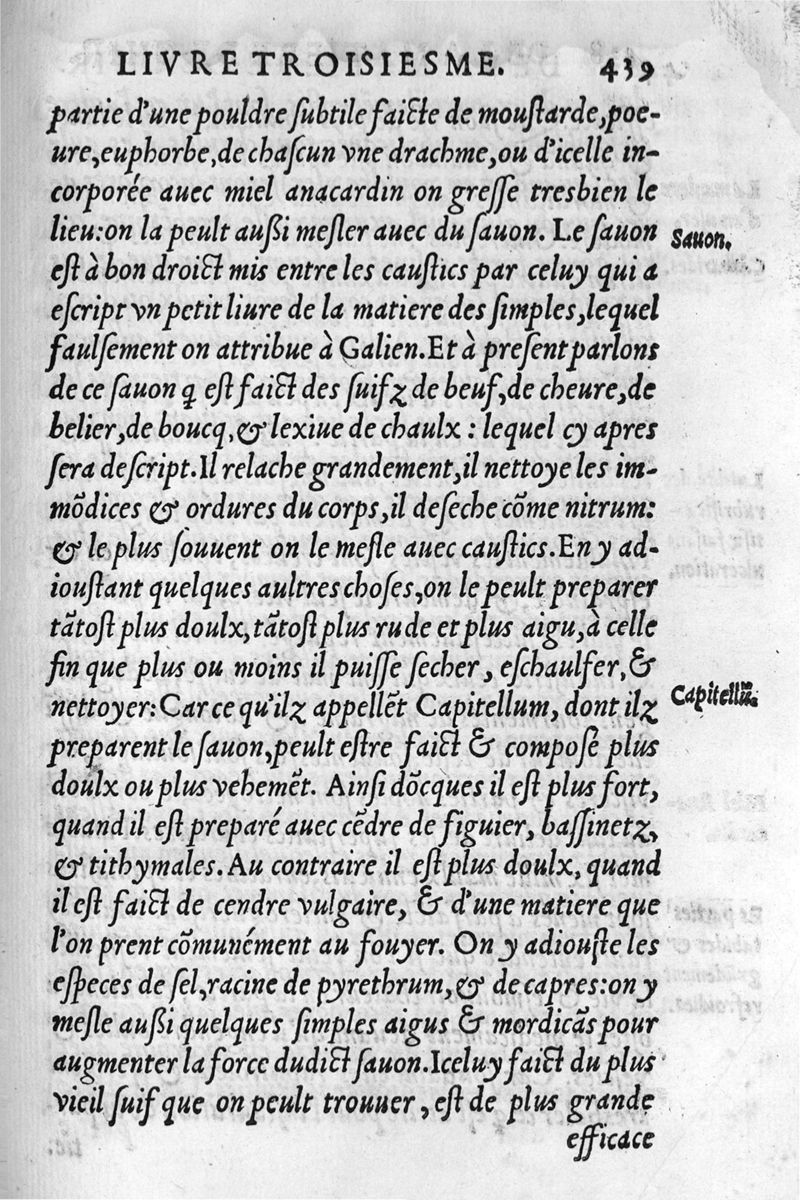 LIVRE TROISIESME. 439
partie d'une pouldre ſubtile faicte de mouſtarde, poe-
ure, euphorbe, de chaſcun vne drachme, ou d'icelle in-
corporée auec miel anacardin on greſſe tresbien le
lieu: on la peult außi meſler auec du ſauon. Le ſauon
Sauon.
eſt à bon droict mis entre les cauſtics par celuy qui a
eſcript vn petit liure de la matiere des ſimples, lequel
faulſement on attribue à Galien. Et à preſent parlons
de ce ſauon q̃ eſt faict des ſuifz de beuf, de cheure, de
belier, de boucq, & lexiue de chaulx : lequel cy apres
ſera deſcript. Il relache grandement, il nettoye les im-
mõdices & ordures du corps, il deſeche cõme nitrum:
& le plus ſouuent on le meſle auec cauſtics. En y ad-
iouſtant quelques aultres choſes, on le peult preparer
tãtoſt plus doulx, tãtoſt plus rude et plus aigu, à celle
fin que plus ou moins il puiſſe ſecher, eſchaulfer, &
nettoyer: Car ce qu'ilz appellẽt Capitellum, dont ilz
Capitellũ.
preparent le ſauon, peult eſtre faict & compoſé plus
doulx ou plus vehemẽt. Ainſi dõcques il eſt plus fort,
quand il eſt preparé auec cẽdre de figuier, baſſinetz,
& tithymales. Au contraire il eſt plus doulx, quand
il eſt faict de cendre vulgaire, & d'une matiere que
l'on prent cõmunément au fouyer. On y adiouſte les
eſpeces de ſel, racine de pyrethrum, & de capres: on y
meſle außi quelques ſimples aigus & mordicãs pour
augmenter la force dudict ſauon. Iceluy faict du plus
vieil ſuif que on peult trouuer, eſt de plus grande
efficace